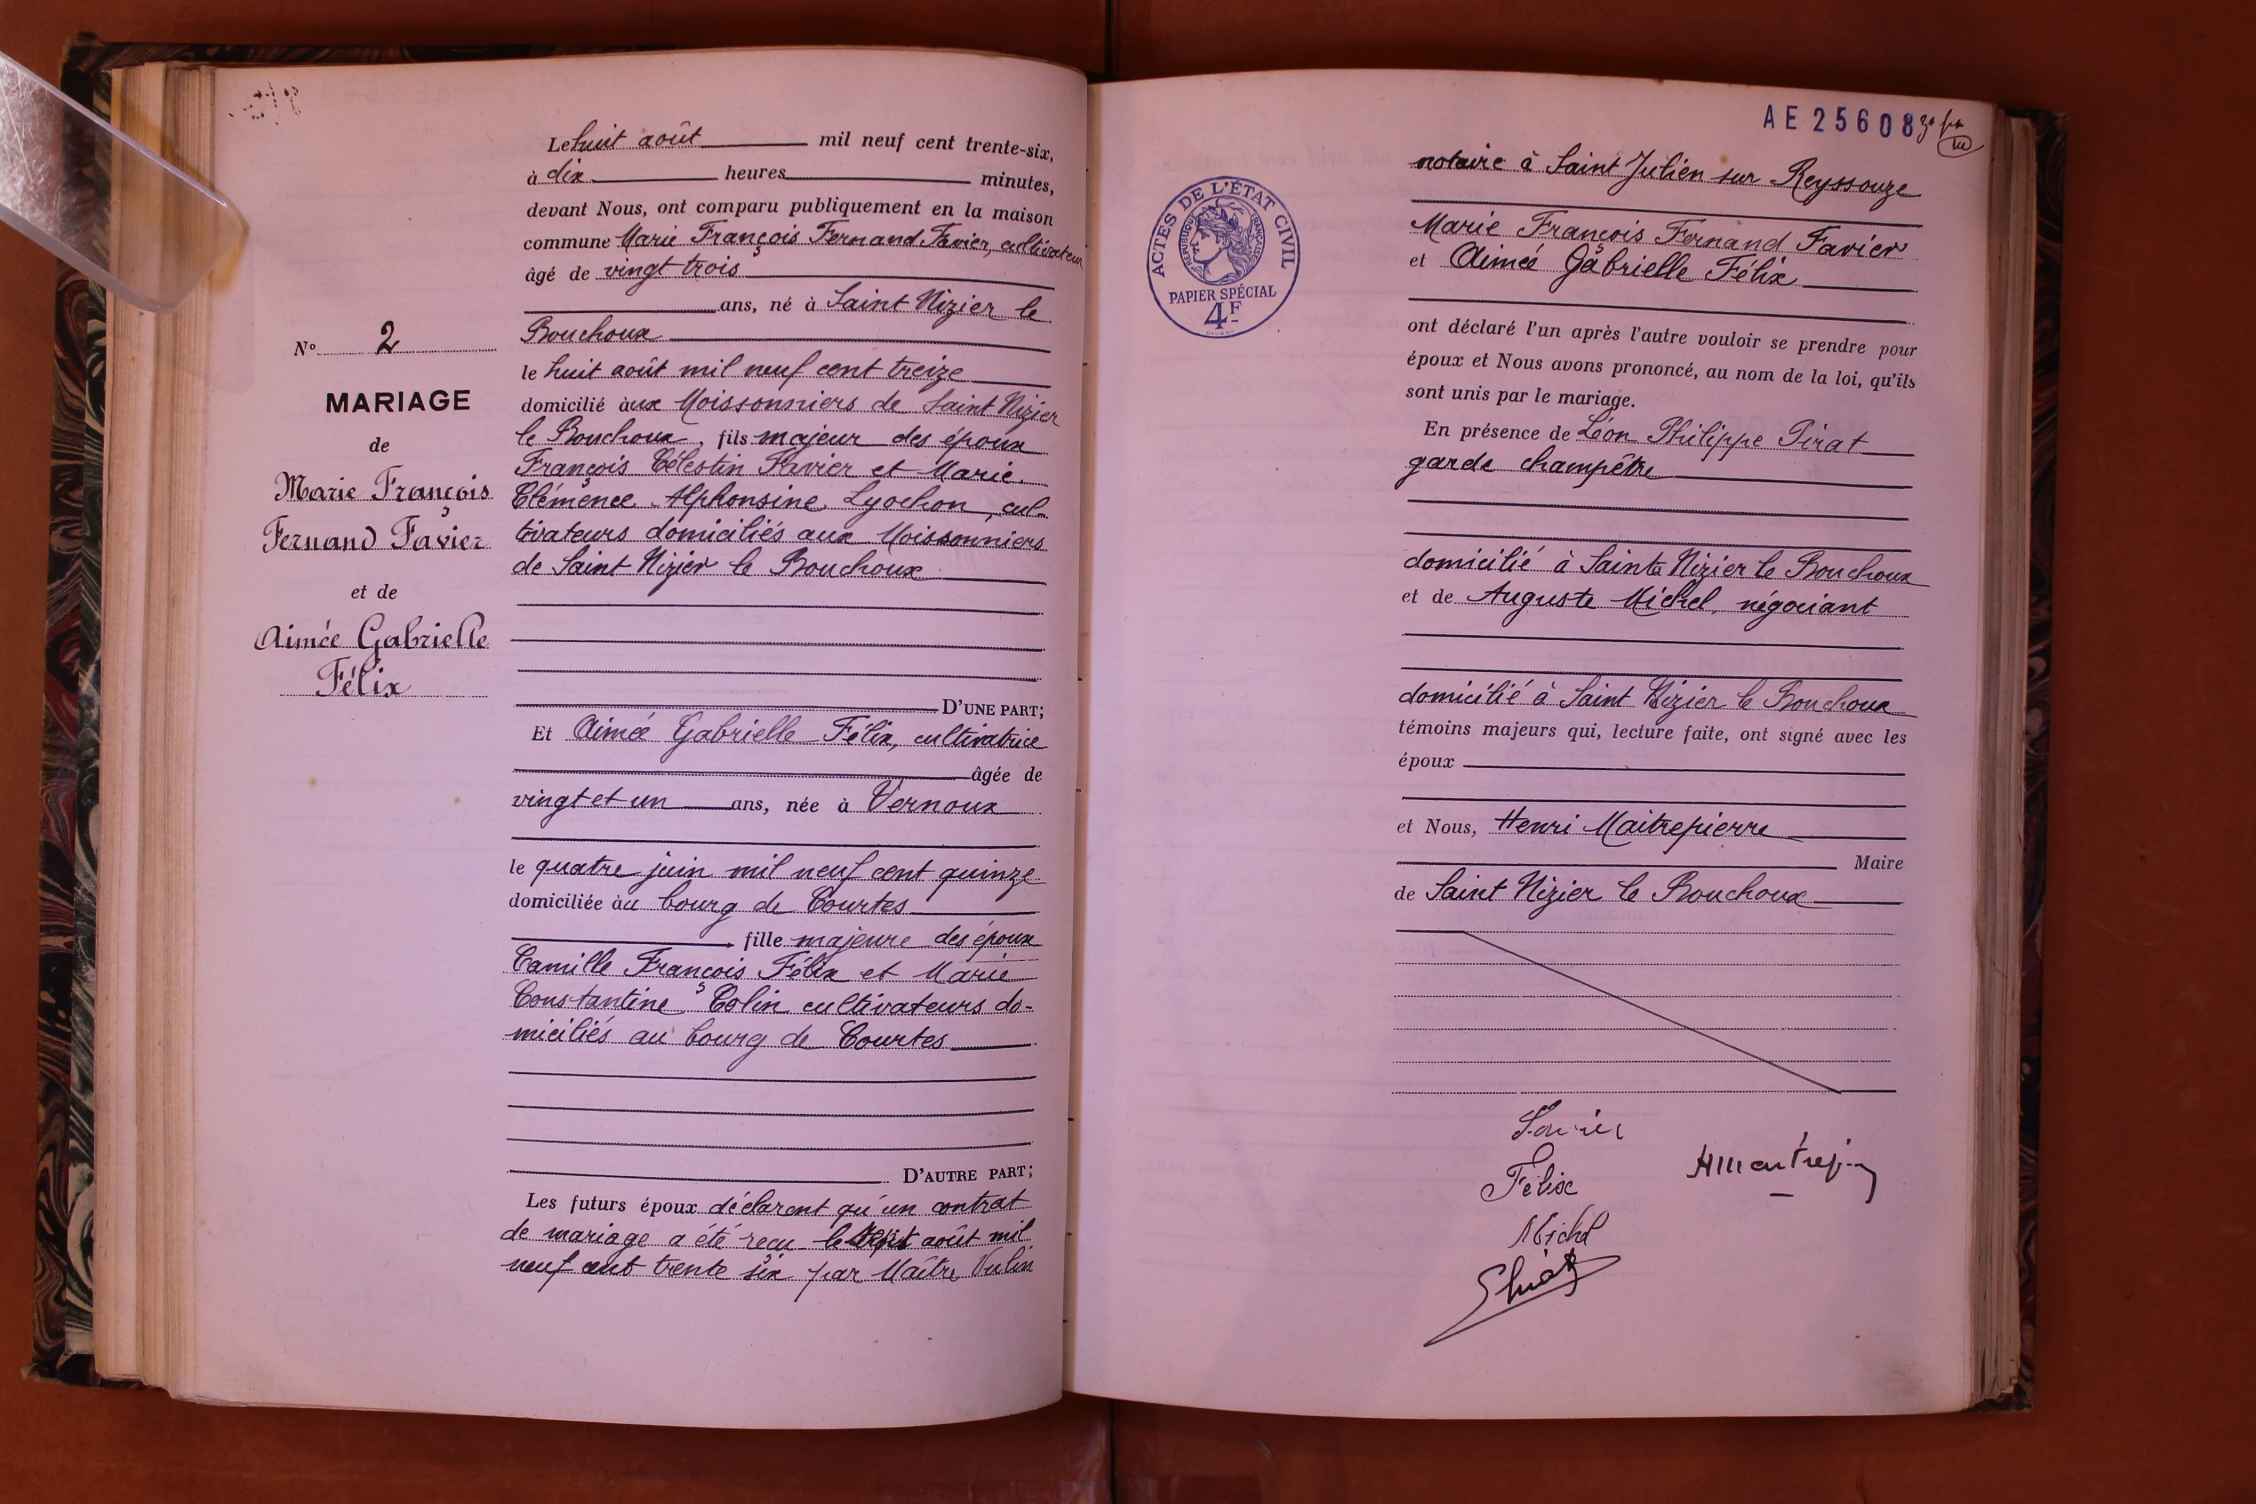 N° 2
MARIAGE
de
Marie François
Fernand Favier
et de
Aimée Gabrielle
Félix
Le huit août mil neuf cent trente-six,
à dix heures minutes,
devant Nous, ont comparu publiquement en la maison
commune Marie François Fernand Favier, cultivateur
âgé de vingt trois
ans, né à Saint Nizier le
Bouchoux
le huit août mil neuf cent treize
domicilié àux Moissonniers de Saint Nizier
le Bouchoux, fils majeur des époux
François Célestin Favier et Marie
Clémence Alphonsine Lyochon, cul-
tivateurs domiciliés aux Moissonniers
de Saint Nizier le Bouchoux
D'UNE PART;
Et Aimée Gabrielle Félix, cultivatrice
âgée de
vingt et un ans, née à Vernoux
le quatre juin mil neuf cent quinze
domiciliée àu bourg de Courtes
fille majeure des époux
Camille François Félix et Marie
Constantine Colin cultivateurs do-
miciliés au bourg de Courtes
D'AUTRE PART;
Les futurs époux déclarent qu'un contrat
de mariage a été reçu le août mil
neuf cent trente six par Maître Vulin
AE 25608
notaire à Saint Julien sur Reyssouze
ACTES DE L'ÉTAT CIVIL
RÉPUBLIQUE FRANÇAISE
PAPIER SPÉCIAL
4F
Marie François Fernand Favier
et Aimée Gabrielle Félix
ont déclaré l'un après l'autre vouloir se prendre pour
époux et Nous avons prononcé, au nom de la loi, qu'ils
sont unis par le mariage.
En présence de Léon Philippe Pirat
garde champêtre
domicilié à Saint Nizier le Bouchoux
et de Auguste Michel, négociant
domicilié à Saint Nizier le Bouchoux
témoins majeurs qui, lecture faite, ont signé avec les
époux
et Nous, Henri Maitrepierre
Maire
de Saint Nizier le Bouchoux
Félix
Michel